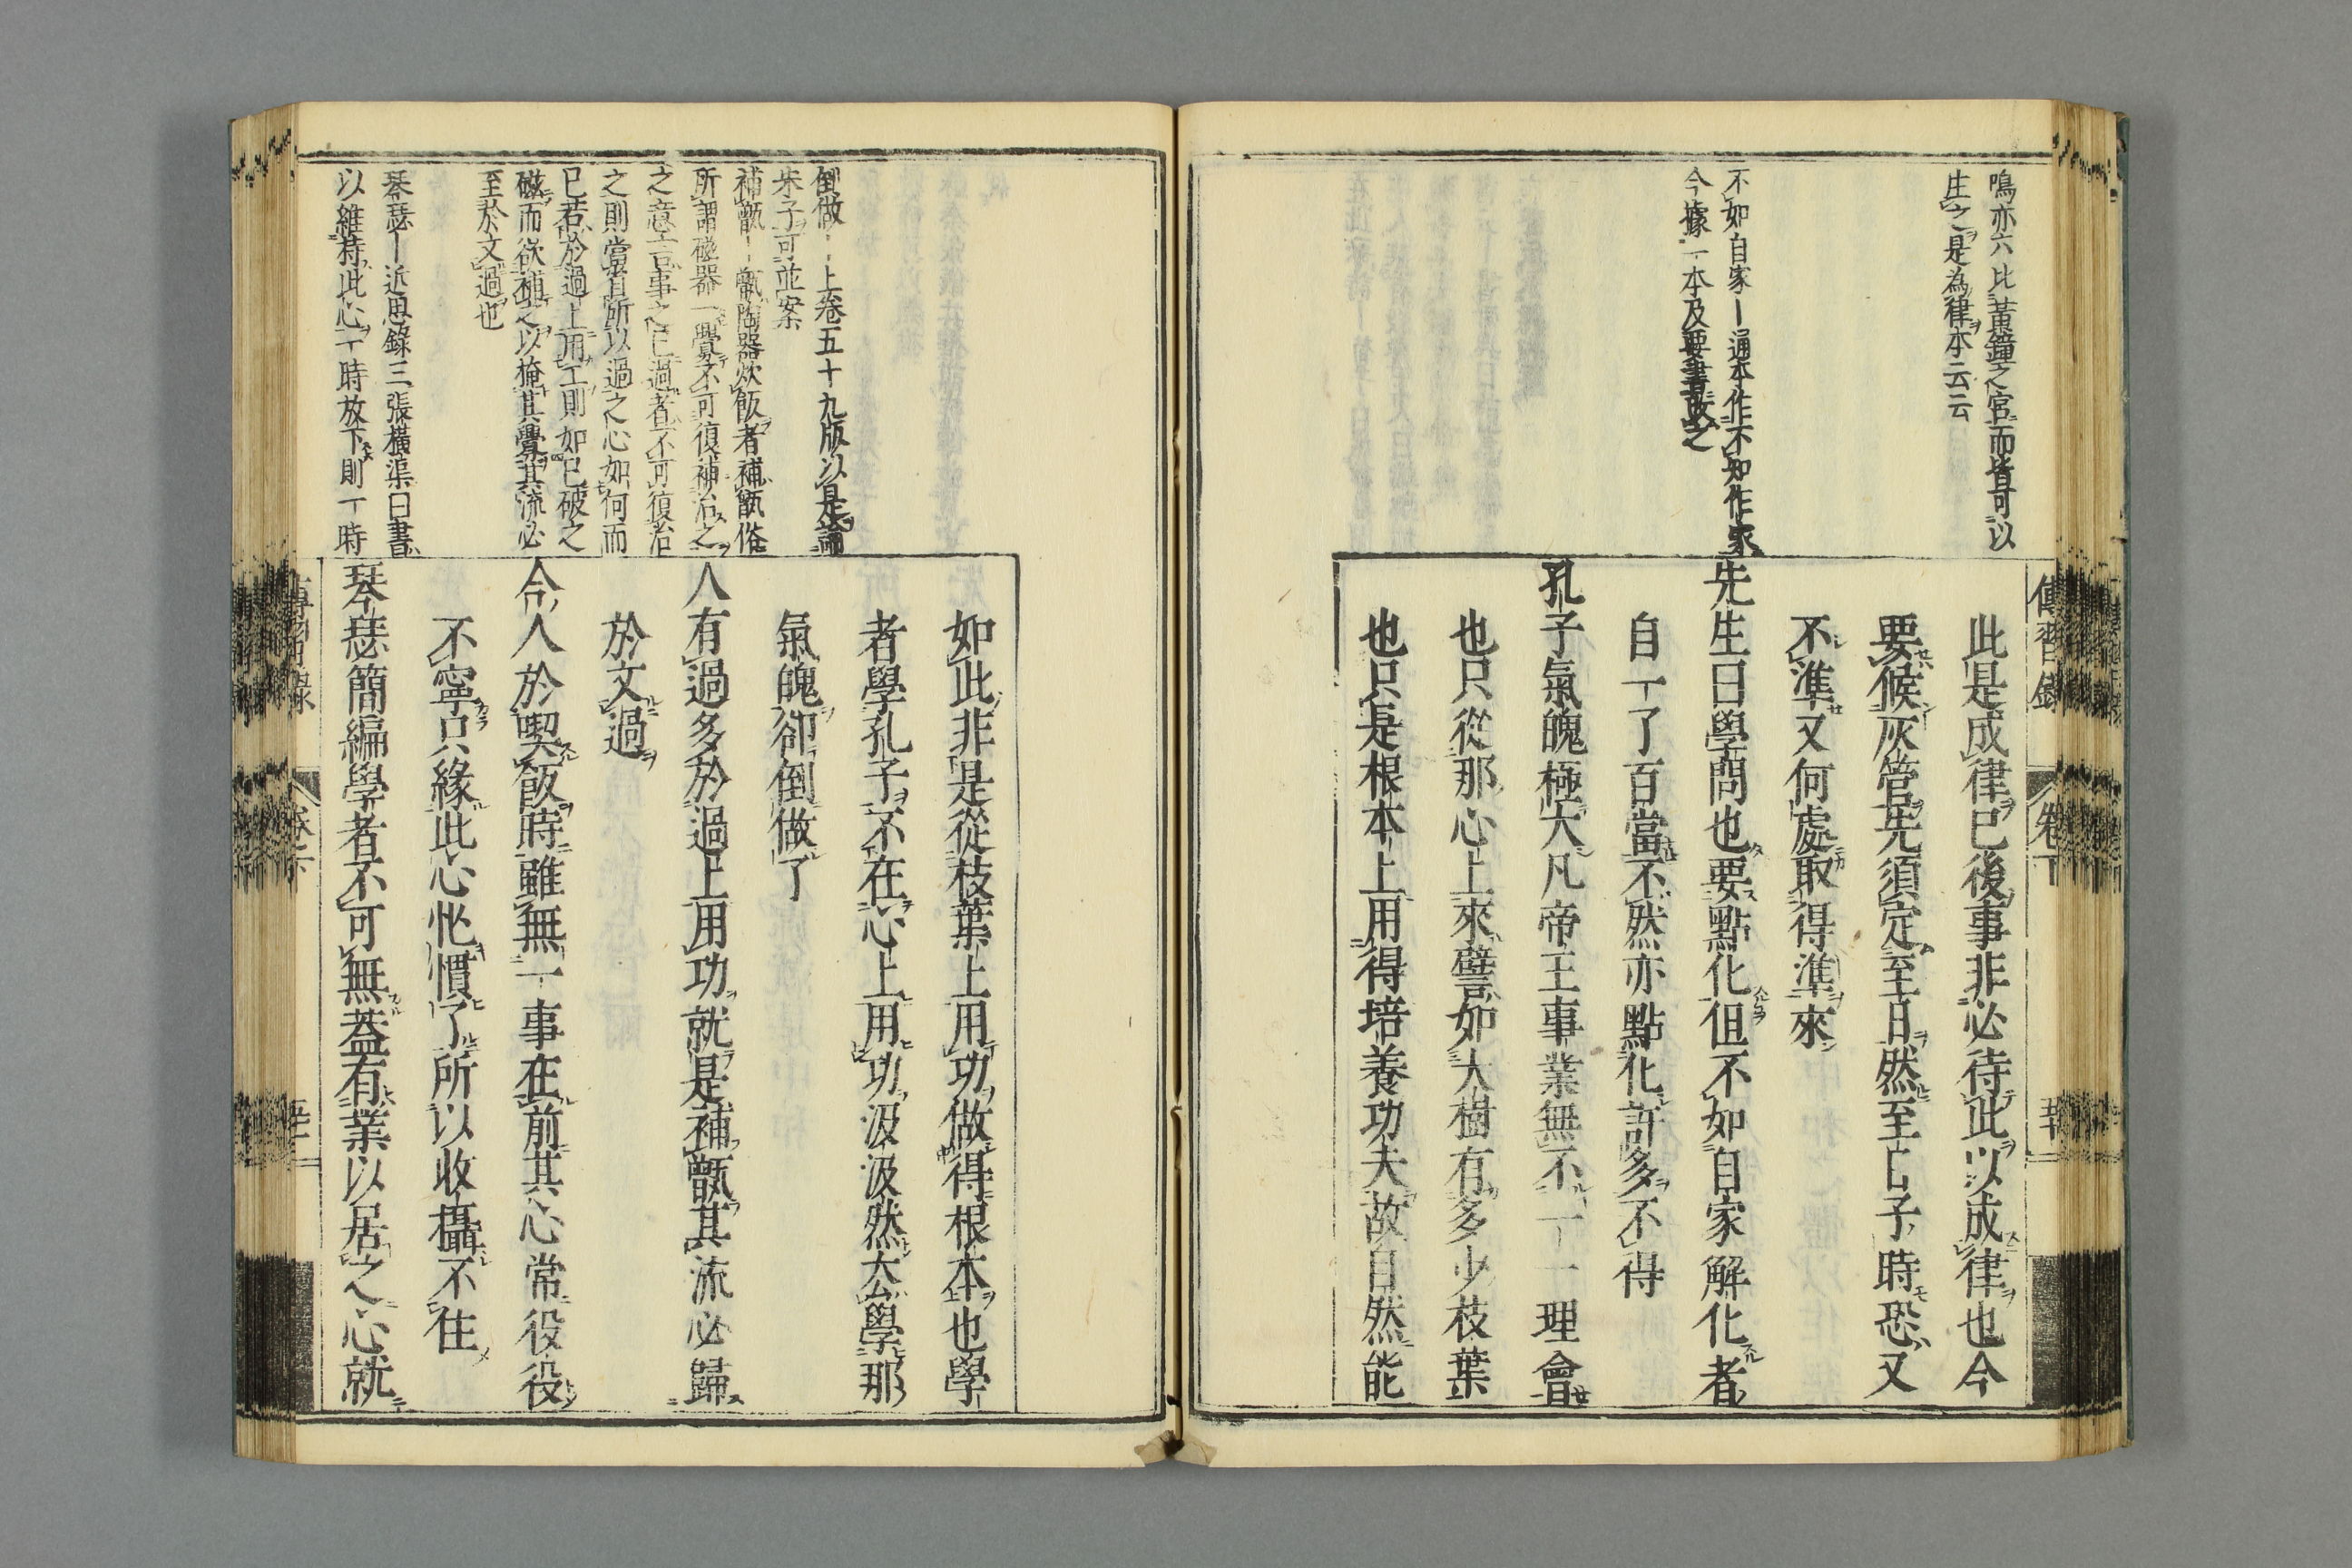 鳴亦六比黃鐘之宮而皆可以
生之是為律本云云
不如自家ー通本作不知作家
今據一本及要書改之
傳習錄
卷下
此是成律已後事非必待此以成律也今
要候灰管先須定至日然至日子時恐又
不準又何處取得準來
先生曰學問也要點化但不如自家解化者
自一了百當不然亦點化許多不得
孔子氣魄極大凡帝王事業無不一一理會
也只從那心上來譬如大樹有多少枝葉
也只是根本上用得培養功夫故自然能
倒做ー上卷五十九版以是論
朱子可並案
補甑ー甑陶器炊飯者補甑俗
所謂磁器一釁不可復補治之
之意言事之已過者不可復治
之則當省所以過之心如何而
已若於過上用工則如已破之
磁而欲補之以掩其釁其流必
至於文過也
琴瑟ー近思錄三張橫渠曰書
以維持此心一時放下則一時
如此非是從枝葉上用功做得根本也學
者學孔子不在心上用功汲汲然去學那
氣魄卻倒做了
人有過多於過上用功就是補甑其流必歸
於文過
今人於喫飯時雖無一事在前其心常役役
不寧只緣此心忙慣了所以收攝不住
琴瑟簡編學者不可無蓋有業以居之心就